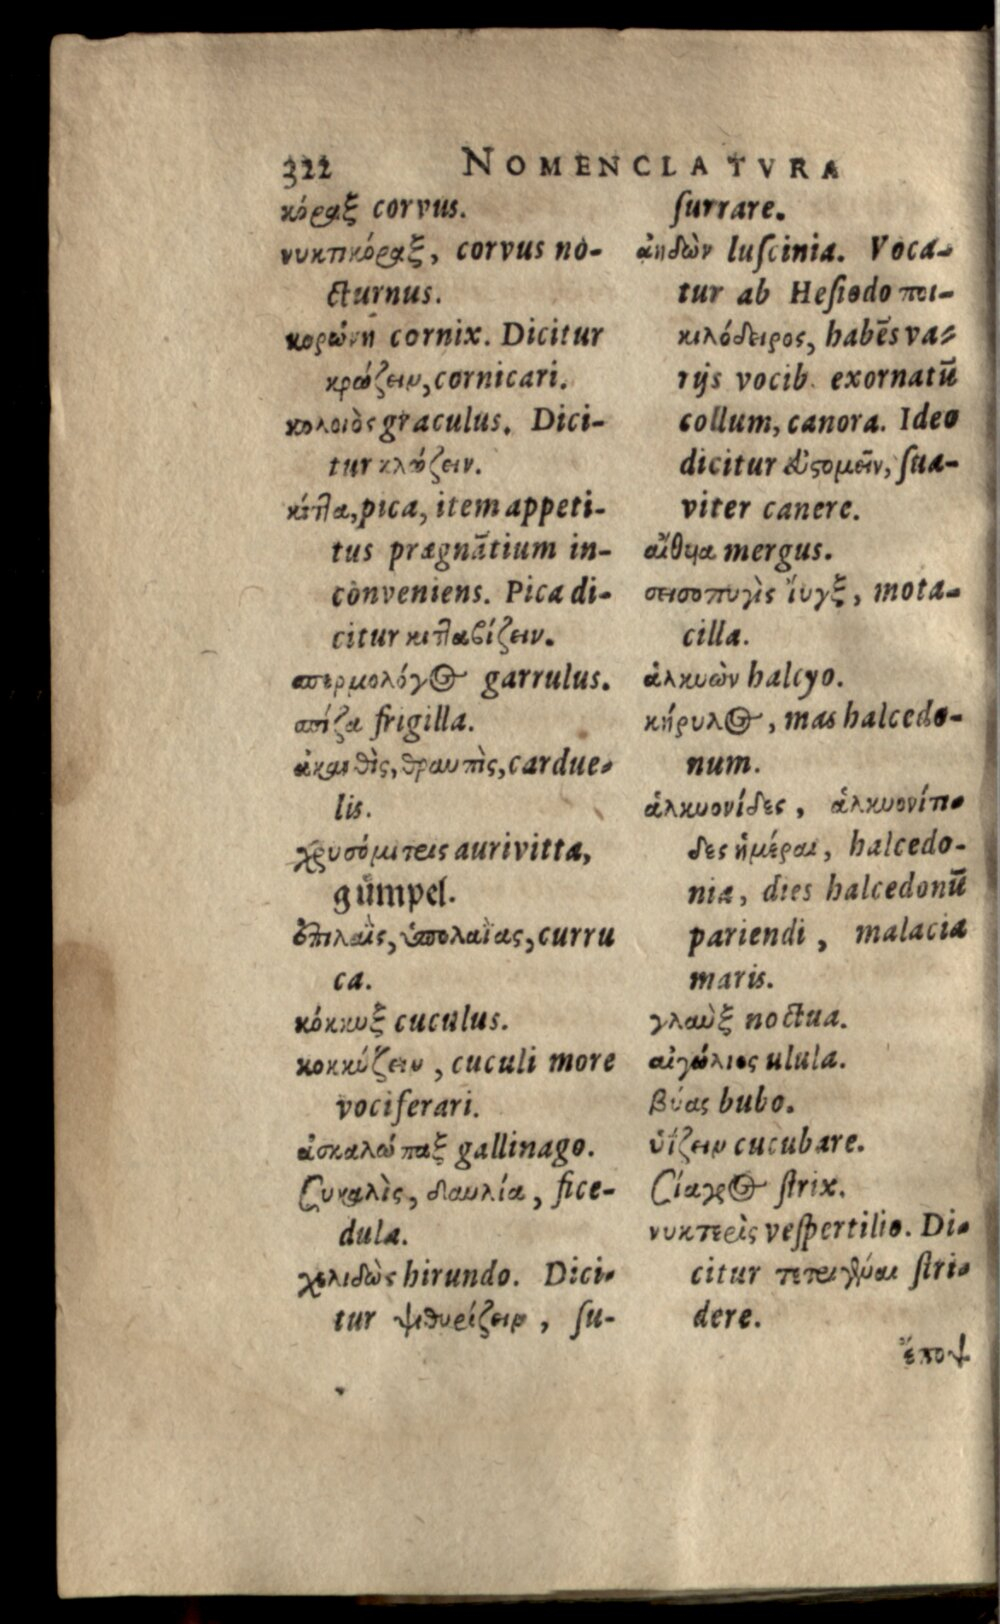 322 NOMENCLATVRA
κόραξ corvus.
νυκτικόραξ, corvus no-
cturnus.
κορώνη cornix. Dicitur
κρώζειν, cornicari.
κολοιὸς graculus. Dici-
tur κλώζειν.
κίτλα, pica, item appeti-
tus prægnātium in-
conveniens. Pica di-
citur κιτλαβίζειν.
σπερμολόγος garrulus.
σπίζα frigilla.
ἀκανθὶς, θραυπὶς, cardue-
lis.
χρυσόμιτρεις aurivitta,
gümpel.
ἐπιλαῒς, ὑπολαῒας, curru
ca.
κόκκυξ cuculus.
κοκκύζειν, cuculi more
vociferari.
ἀσκαλώπαξ gallinago.
συκαλὶς, διαυλία, fice-
dula.
χελιδὼν hirundo. Dici-
tur ψιθυρίζειν, ſu-
ſurrare.
ἀηδὼν luſcinia. Voca-
tur ab Heſiodo ποι-
κιλόδειρος, habēs va-
rijs vocib. exornatū
collum, canora. Ideo
dicitur εὐστομεῖν, ſua-
viter canere.
αἴθυα mergus.
σεισοπυγὶς ἴυγξ, mota-
cilla.
ἁλκυὼν halcyo.
κήρυλος, mas halcedo-
num.
ἁλκυονίδες, ἁλκυονίτι-
δες ἡμέραι, halcedo-
nia, dies halcedonū
pariendi, malacia
maris.
γλαὺξ noctua.
αἰγώλιος ulula.
βύας bubo.
ὑΐζειν cucubare.
σίαγρος ſtrix.
νυκτερὶς veſpertilio. Di-
citur τετριγέναι ſtri-
dere.
ἔποψ